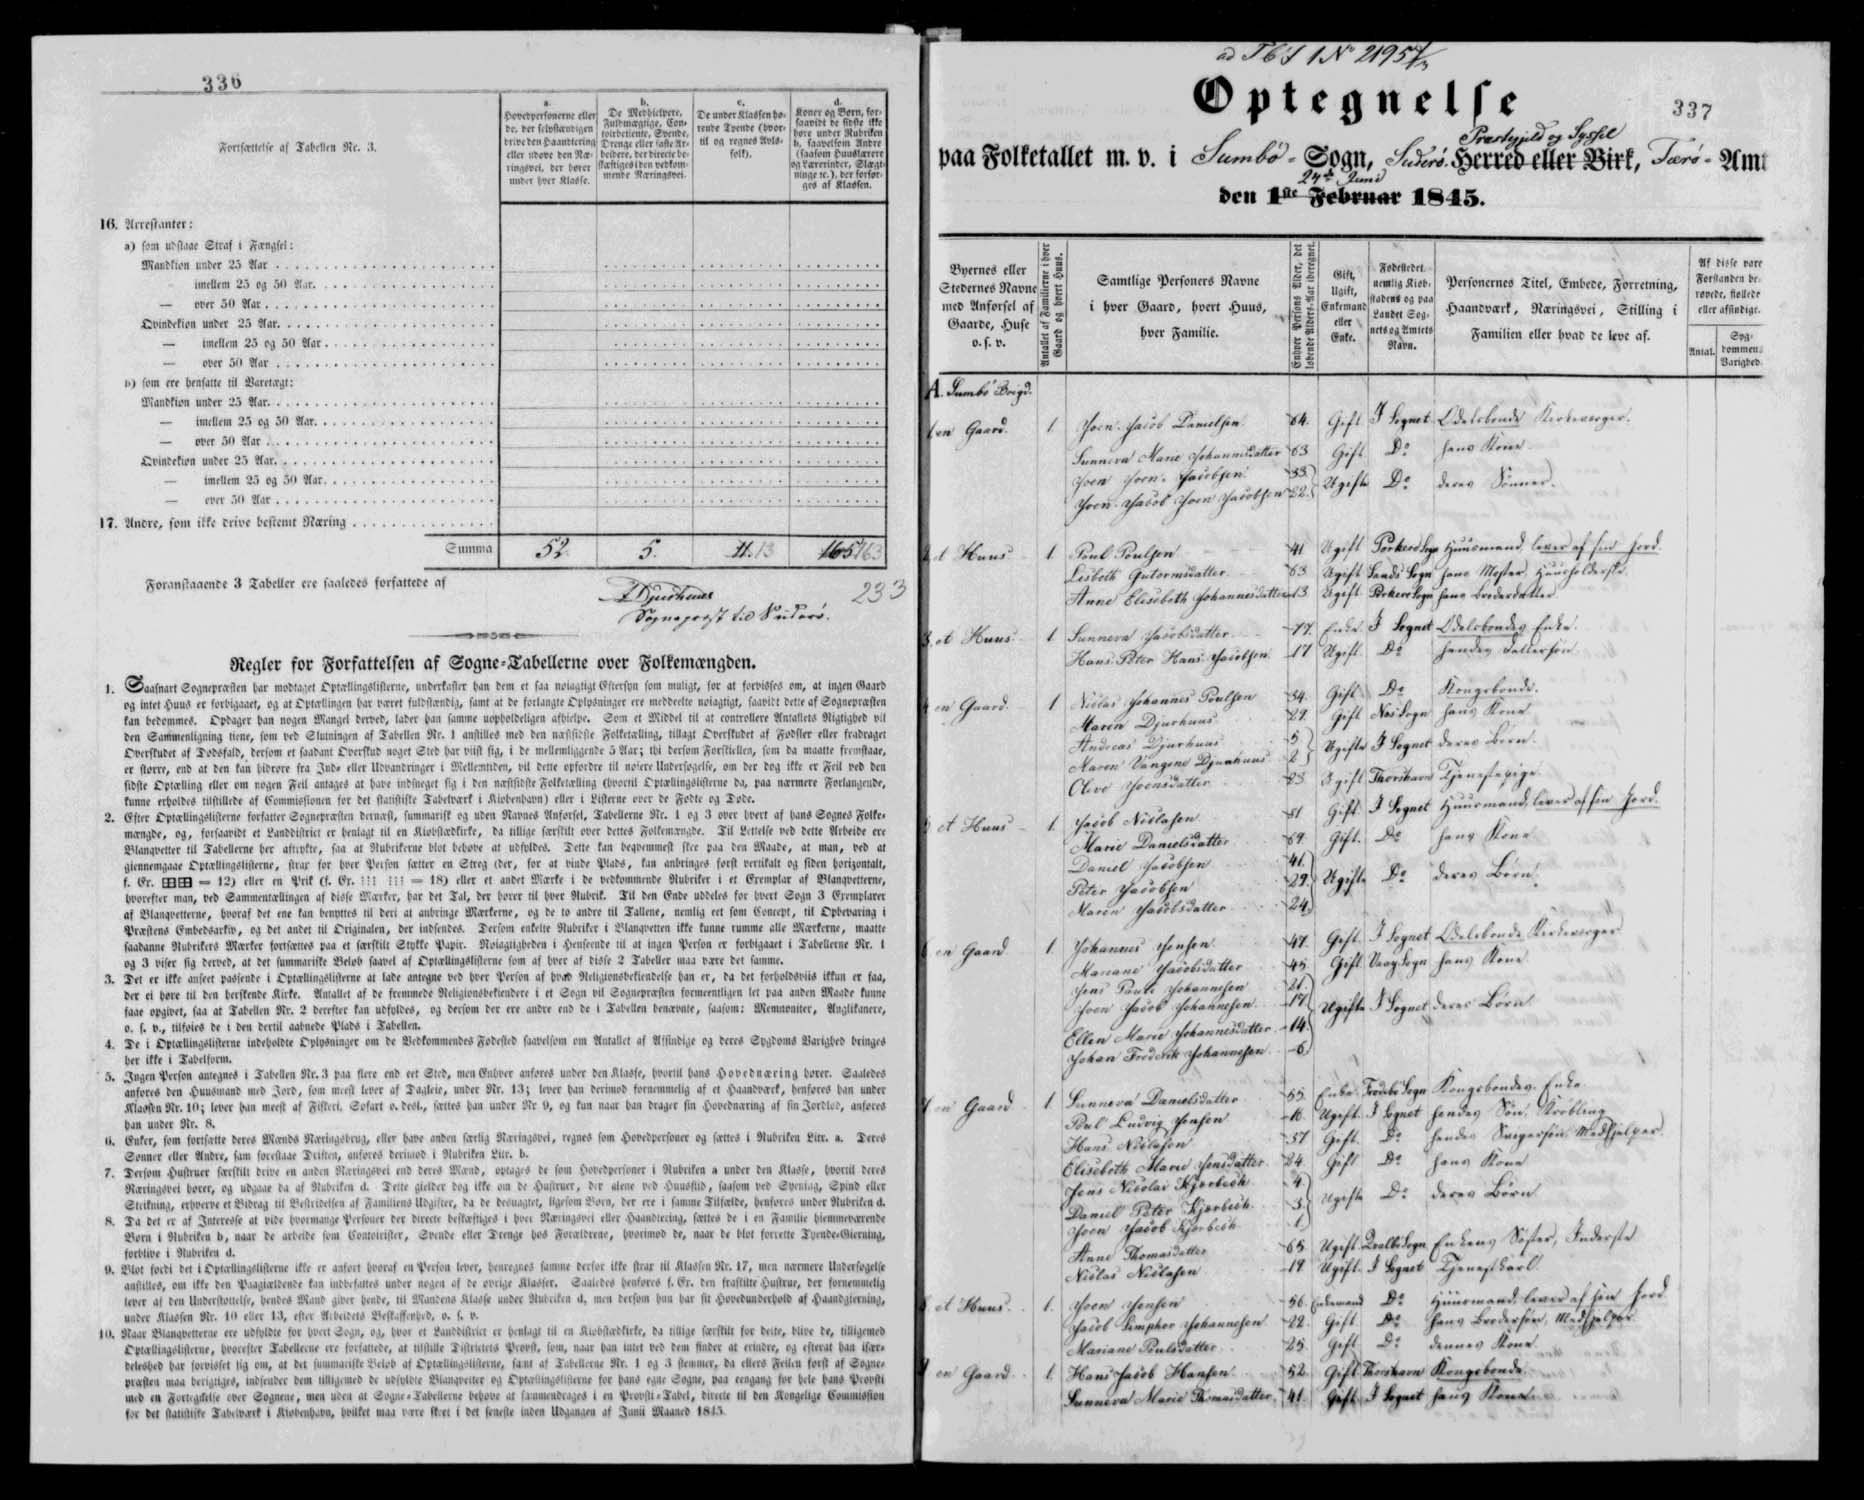 336
Fortsættelse af Tabellen Nr. 3.
a.
Hovedpersonerne eller
de, der selvstændigen
drive den Haandtering
eller udøve den Næ-
ringsvei, der hører
under hver Klasse.
b.
De Medhielpere,
Fuldmægtige, Con-
toirbetiente, Svende,
Drenge eller faste Ar-
beidere, der directe be-
skæftiges i den vedkom-
mende Næringsvei.
c.
De under Klassen hø-
rende Tyende (hvor-
til og regnes Avls-
folk).
d.
Koner og Børn, for-
saavidt de sidste ikke
høre under Rubriken
b, saavelsom Andre
(saasom Huuslærere
og Lærerinder, Slægt-
ninge ꝛc.), der forsør-
ges af Klassen.
16. Arrestanter:
a) som udstaae Straf i Fængsel:
Mandkiøn under 25 Aar
imellem 25 og 50 Aar
— over 50 Aar
Qvindekiøn under 25 Aar
— imellem 25 og 50 Aar
— over 50 Aar
b) som ere hensatte til Varetægt:
Mandkiøn under 25 Aar
— imellem 25 og 50 Aar
— over 50 Aar
Qvindekiøn under 25 Aar
— imellem 25 og 50 Aar
— over 50 Aar
17. Andre, som ikke drive bestemt Næring
Summa 52. 5. 11. 13 165 163
Foranstaaende 3 Tabeller ere saaledes forfattede af
Djurhuus 233
Sognepræst til Suderö.
Regler for Forfattelsen af Sogne-Tabellerne over Folkemængden.
1. Saasnart Sognepræsten har modtaget Optællingslisterne, underkaster han dem et saa nøiagtigt Eftersyn som muligt, for at forvisses om, at ingen Gaard
og intet Huus er forbigaaet, og at Optællingen har været fuldstændig, samt at de forlangte Oplysninger ere meddeelte nøiagtigt, saavidt dette af Sognepræsten
kan bedømmes. Opdager han nogen Mangel derved, lader han samme uopholdeligen afhielpe. Som et Middel til at controllere Antallets Rigtighed vil
den Sammenligning tiene, som ved Slutningen af Tabellen Nr. 1 anstilles med den næstsidste Folketælling, tillagt Overskudet af Fødsler eller fradraget
Overskudet af Dødsfald, dersom et saadant Overskud noget Sted har viist sig, i de mellemliggende 5 Aar; thi dersom Forskiellen, som da maatte fremstaae,
er større, end at den kan hidrøre fra Ind- eller Udvandringer i Mellemtiden, vil dette opfordre til nøiere Undersøgelse, om der dog ikke er Feil ved den
sidste Optælling eller om nogen Feil antages at have indsneget sig i den næstsidste Folketælling (hvortil Optællingslisterne da, paa nærmere Forlangende,
kunne erholdes tilstillede af Commissionen for det statistiske Tabelværk i Kiøbenhavn) eller i Listerne over de Fødte og Døde.
2. Efter Optællingslisterne forfatter Sognepræsten dernæst, summarisk og uden Navnes Anførsel, Tabellerne Nr. 1 og 3 over hvert af hans Sognes Folke-
mængde, og, forsaavidt et Landdistrict er henlagt til en Kiøbstædkirke, da tillige særskilt over dettes Folkemængde. Til Lettelse ved dette Arbeide ere
Blanqvetter til Tabellerne her aftrykte, saa at Rubrikerne blot behøve at udfyldes. Dette kan beqvemmest skee paa den Maade, at man, ved at
giennemgaae Optællingslisterne, strax for hver Person sætter en Streg (der, for at vinde Plads, kan anbringes først vertikalt og siden horizontalt,
f. Ex. = 12) eller en Prik (f. Ex. = 18) eller et andet Mærke i de vedkommende Rubriker i et Exemplar af Blanqvetterne,
hvorefter man, ved Sammentællingen af disse Mærker, har det Tal, der hører til hver Rubrik. Til den Ende uddeles for hvert Sogn 3 Exemplarer
af Blanqvetterne, hvoraf det ene kan benyttes til deri at anbringe Mærkerne, og de to andre til Tallene, nemlig eet som Concept, til Opbevaring i
Præstens Embedsarkiv, og det andet til Originalen, der indsendes. Dersom enkelte Rubriker i Blanqvetten ikke kunne rumme alle Mærkerne, maatte
saadanne Rubrikers Mærker fortsættes paa et særskilt Stykke Papir. Nøiagtigheden i Henseende til at ingen Person er forbigaaet i Tabellerne Nr. 1
og 3 viser sig derved, at det summariske Beløb saavel af Optællingslisterne som af hver af disse 2 Tabeller maa være det samme.
3. Det er ikke anseet passende i Optællingslisterne at lade antegne ved hver Person af hvad Religionsbekiendelse han er, da det forholdsviis ikkun er faa,
der ei høre til den herskende Kirke. Antallet af de fremmede Religionsbekiendere i et Sogn vil Sognepræsten formeentligen let paa anden Maade kunne
faae opgivet, saa at Tabellen Nr. 2 derefter kan udfyldes, og dersom der ere andre end de i Tabellen benævnte, saasom: Memnoniter, Anglikanere,
o. s. v., tilføies de i den dertil aabnede Plads i Tabellen.
4. De i Optællingslisterne indeholdte Oplysninger om de Vedkommendes Fødested saavelsom om Antallet af Afsindige og deres Sygdoms Varighed bringes
her ikke i Tabelform.
5. Ingen Person antegnes i Tabellen Nr. 3 paa flere end eet Sted, men Enhver anføres under den Klasse, hvortil hans Hovednæring hører. Saaledes
anføres den Huusmand med Jord, som meest lever af Dagleie, under Nr. 13; lever han derimod fornemmelig af et Haandværk, henføres han under
Klassen Nr. 10; lever han meest af Fiskeri, Søfart o. desl., sættes han under Nr 9, og kun naar han drager sin Hovednæring af sin Jordlod, anføres
han under Nr. 8.
6. Enker, som fortsætte deres Mænds Næringsbrug, eller have anden særlig Næringsvei, regnes som Hovedpersoner og sættes i Rubriken Litr. a. Deres
Sønner eller Andre, sam forestaae Driften, anføres derimod i Rubriken Litr. b.
7. Dersom Hustruer særskilt drive en anden Næringsvei end deres Mænd, optages de som Hovedpersoner i Rubriken a under den Klasse, hvortil deres
Næringsvei hører, og udgaae da af Rubriken d. Dette gielder dog ikke om de Hustruer, der alene ved Huusflid, saasom ved Syening, Spind eller
Strikning, erhverve et Bidrag til Bestridelsen af Familiens Udgifter, da de desuagtet, ligesom Børn, der ere i samme Tilfælde, henføres under Rubriken d.
8. Da det er af Interesse at vide hvormange Personer der directe beskæftiges i hver Næringsvei eller Haandtering, sættes de i en Familie hiemmeværende
Børn i Rubriken b, naar de arbeide som Contoirister, Svende eller Drenge hos Forældrene, hvorimod de, naar de blot forrette Tyende-Gierning,
forblive i Rubriken d.
9. Blot fordi det i Optællingslisterne ikke er anført hvoraf en Person lever, henregnes samme derfor ikke strax til Klassen Nr. 17, men nærmere Undersøgelse
anstilles, om ikke den Paagieldende kan indbefattes under nogen af de øvrige Klasser. Saaledes henføres f. Ex. den fraskilte Hustrue, der fornemmelig
lever af den Understøttelse, hendes Mand giver hende, til Mandens Klasse under Rubriken d, men dersom hun har sit Hovedunderhold af Haandgierning,
under Klassen Nr. 10 eller 13, efter Arbeidets Beskaffenhed, o. s. v.
10. Naar Blanqvetterne ere udfyldte for hvert Sogn, og, hvor et Landdistrict er henlagt til en Kiøbstædkirke, da tillige særskilt for dette, blive de, tilligemed
Optællingslisterne, hvorefter Tabellerne ere forfattede, at tilstille Districtets Provst, som, naar han intet ved dem finder at erindre, og efterat han især-
deleshed har forvisset sig om, at det summariske Beløb af Optællingslisterne, samt af Tabellerne Nr. 1 og 3 stemmer, da ellers Feilen først af Sogne-
præsten maa berigtiges, indsender dem tilligemed de udfyldte Blanqvetter og Optællingslisterne for hans egne Sogne, paa eengang for hele hans Provsti
med en Fortegnelse over Sognene, men uden at Sogne-Tabellerne behøve at sammendrages i en Provsti-Tabel, directe til den Kongelige Commission
for det statistiske Tabelværk i Kiøbenhavn, hvilket maa være skeet i det seneste inden Udgangen af Junii Maaned 1845.
337
Optegnelse
Præstegjeld og Syssel
paa Folketallet m. v. i Sumbö Sogn, Suderö. Herred eller Birk, Færö Amt
24de Juni
den 1ste Februar 1845.
Byernes eller
Stedernes Navne
med Anførsel af
Gaarde, Huse
o. s. v.
Antallet af Familierne i hver
Gaard og hvert Huus.
Samtlige Personers Navne
i hver Gaard, hvert Huus,
hver Familie.
Enhver Persons Alder, det
løbende Alders-Aar iberegnet.
Gift,
Ugift,
Enkemand
eller
Enke.
Fødestedet,
nemlig Kiøb-
stadens og paa
Landet Sog-
nets og Amtets
Navn.
Personernes Titel, Embede, Forretning,
Haandværk, Næringsvei, Stilling i
Familien eller hvad de leve af.
Af disse vare
Forstanden be-
røvede, fiollede
eller afsindige.
Antal.
Syg-
dommens
Varighed.
A. Sumbö Bøigd.
1 en Gaard. 1 Joen Jacob Danielsen 64. Gift I Sognet Odelsbonde Kirkeverger.
Sunneva Marie Johannesdatter 63 Gift Do hans Kone
Joen Joen Jacobsen 33 Ugifte Do deres Sønner
Joen Jacob Joen Jacobsen 22
2 et Huus 1 Poul Poulsen 41 Ugift Porkere Sogn Huusmand, lever af sin Jord.
Lisbeth Gutormsdatter 63 Ugift Sands Sogn hans Moster, Huusholderske
Anne Elisebeth Johannesdatter 13 Ugift Porkere Sogn hans Broderdatter
3. et Huus 1 Sunneva Jacobsdatter 77. Enke I Sognet Odelsbondes Enke.
Hans Peter Hans Jacobsen 17 Ugift Do hendes
4 en Gaard. 1 Niclas Johannes Poulsen 34. Gift Do Kongsbonde.
Maren Djurhuus 29. Gift Næs Sogn hans Kone
Andreas Djurhuus 5 Ugifte I Sognet deres Børn.
Maren Djurhuus 2
Olive Joensdatter 23 Ugift Thorshavn Tjenestepige.
5 et Huus 1. Jacob Niclasen 81 Gift I Sognet Huusmand, lever af sin Jord.
Marie Danielsdatter 69. Gift. Do hans Kone
Daniel Jacobsen 41. Ugifte Do deres Børn.
Peter Jacobsen 29.
Maren Jacobsdatter 24.
6 en Gaard 1. Johannes Jensen 47. Gift. I Sognet Odelsbonde Kirkeverger
Mariane Jacobsdatter 45. Gift Vaag Sogn hans Kone
Jens Pauli Johannesen 21. Ugifte I Sognet deres Børn
Joen Jacob Johannesen 17
Ellen Marie Johannesdatter 14.
Johan Frederik Johannesen 6.
7 en Gaard 1. Sunneva Danielsdatter 55. Enke Sogn Kongsbondes Enke
Poul Ludvig Jensen 16. Ugift. I Sognet hendes Søn, Krøbling
Hans Niclasen 37 Gift Do hendes Svigersøn, Medhjelper.
Elisebeth Marie Jensdatter 24. Gift Do hans Kone
Jens Nicolai Kjærbech 4 Ugifte Do deres Børn
Daniel Peter Kjærbech 3
Joen Jacob Kjærbech 1
Anne Thomasdatter 65. Ugift. Qvalbö Sogn Enkens Søster, Inderste
Niclas Niclasen 19 Ugift. I Sognet Tjenestkarl.
8 et Huus. 1. Joen Jensen 56. Enkemand Do Huusmand, lever af sin Jord
Jacob Johannesen 22. Gift Do hans Brodersøn, Medhjelper.
Mariane Poulsdatter 25. Gift. Do dennes Kone
9 en Gaard. 1. Hans Jacob Hansen 52. Gift Thorshavn Kongsbonde.
Sunneva Marie Thomasdatter 41. Gift I Sognet hans Kone